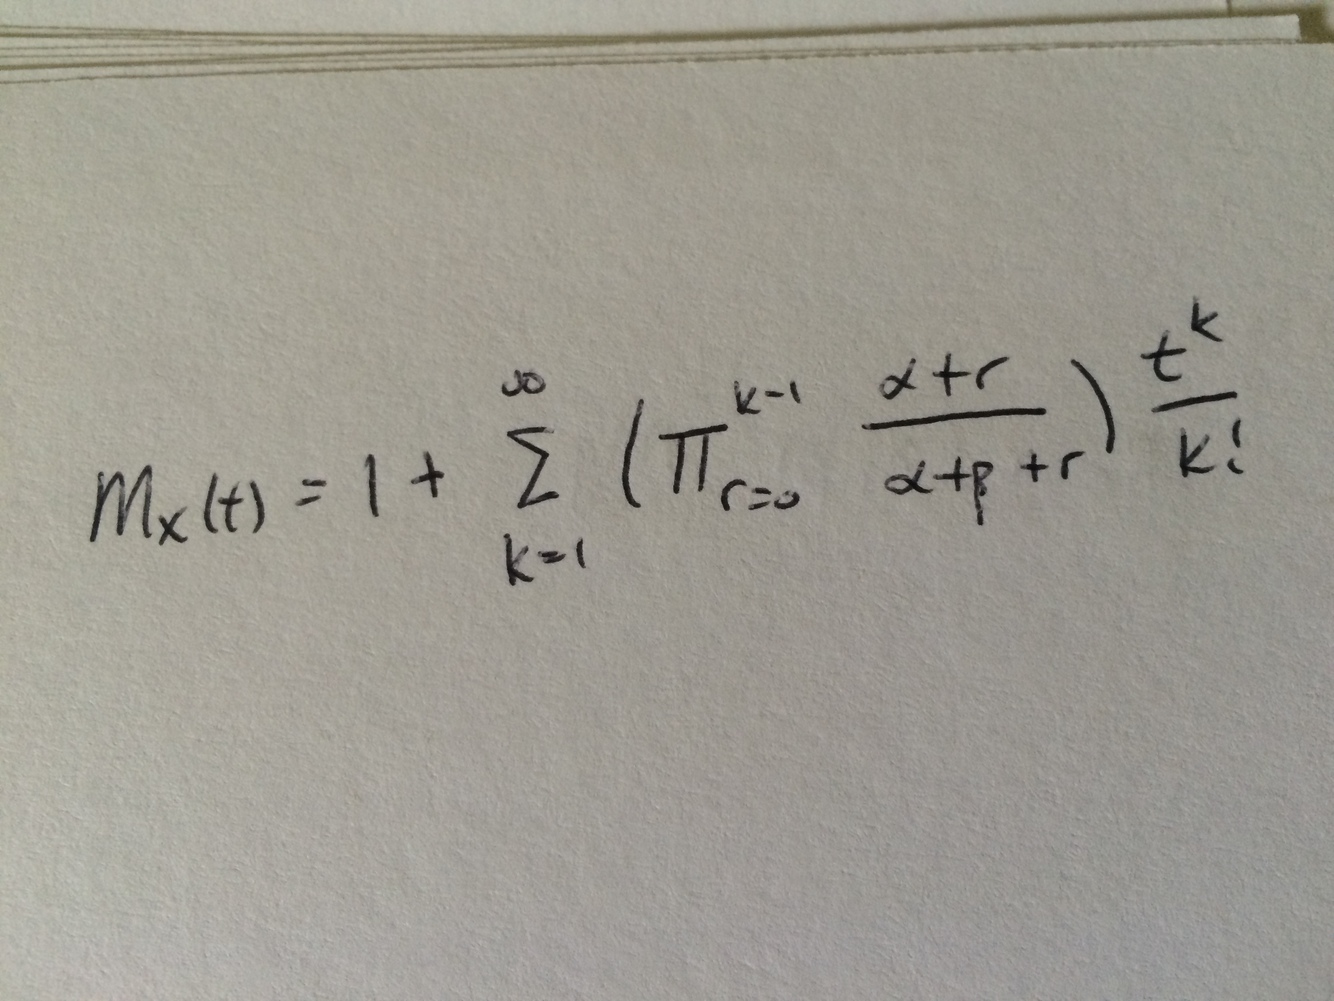 M_X(t) = 1 + \sum_{k=1}^{\infty} ( \prod_{r=0}^{k-1} \frac{\alpha+r}{\alpha+\beta+r} ) \frac{t^k}{k!}